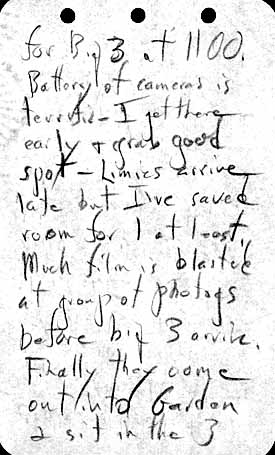 for Big 3 at 1100.
Battery of cameras is
terrific - I get there
early & grab good
spot - Limies arrive
late but I've saved
room for 1 at least.
Much film is blasted
at group of photogs
before big 3 arrive.
Finally they come
out into Garden
& sit in the 3